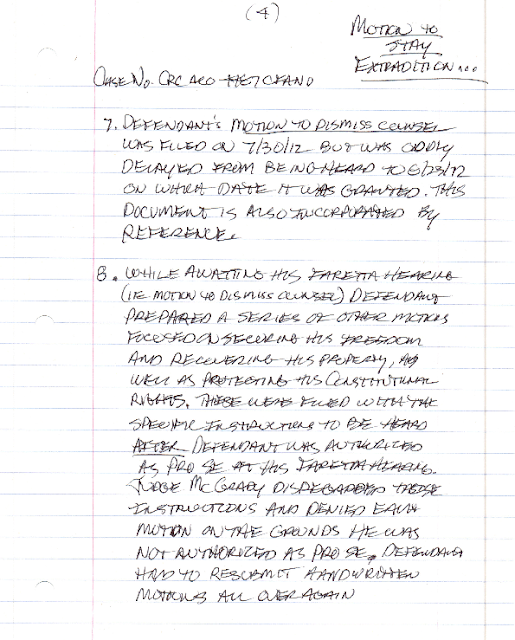 (4)
MOTION TO
STAY
EXTRADITION...
CASE NO. CRC ACO
7. DEFENDANT'S MOTION TO DISMISS COUNSEL
WAS FILED ON 7/30/12 BUT WAS ODDLY
DELAYED FROM BEING HEARD TO 8/23/12
ON WHICH DATE IT WAS GRANTED. THIS
DOCUMENT IS ALSO INCORPORATED BY
REFERENCE.
8. WHILE AWAITING HIS FARETTA HEARING
(IE MOTION TO DISMISS COUNSEL) DEFENDANT
PREPARED A SERIES OF OTHER MOTIONS
FOCUSED ON SECURING HIS FREEDOM
AND RECOVERING HIS PROPERTY, AS
WELL AS PROTECTING HIS CONSTITUTIONAL
RIGHTS. THESE WERE FILED WITH THE
SPECIFIC INSTRUCTIONS TO BE HEARD
AFTER DEFENDANT WAS AUTHORIZED
AS PRO SE AT HIS FARETTA HEARING.
JUDGE McGRADY DISREGARDED THESE
INSTRUCTIONS AND DENIED EACH
MOTION ON THE GROUNDS HE WAS
NOT AUTHORIZED AS PRO SE. DEFENDANT
HAD TO RESUBMIT HANDWRITTEN
MOTIONS ALL OVER AGAIN